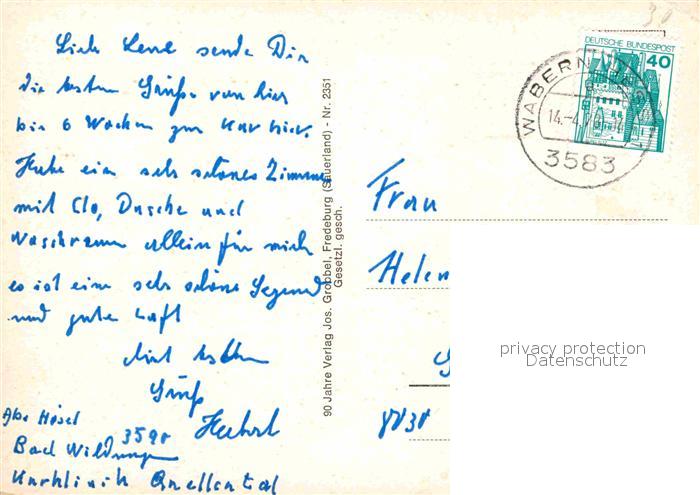 Liebe Lene sende Dir
die besten Grüße von hier
bin 6 Wochen zur Kur hier.
Habe ein sehr schönes Zimmer
mit Clo, Dusche und
Waschraum allein für mich
es ist eine sehr schöne Gegend
und gute Luft
Mit besten
Gruß
Abs
3590
Bad Wildungen
Kurklinik Quellental
90 Jahre Verlag Jos. Grobbel, Fredeburg (Sauerland) - Nr. 2351
Gesetzl. gesch.
30
DEUTSCHE BUNDESPOST
40
WABERN
14.-4.
3583
Frau
Helen
privacy protection
Datenschutz